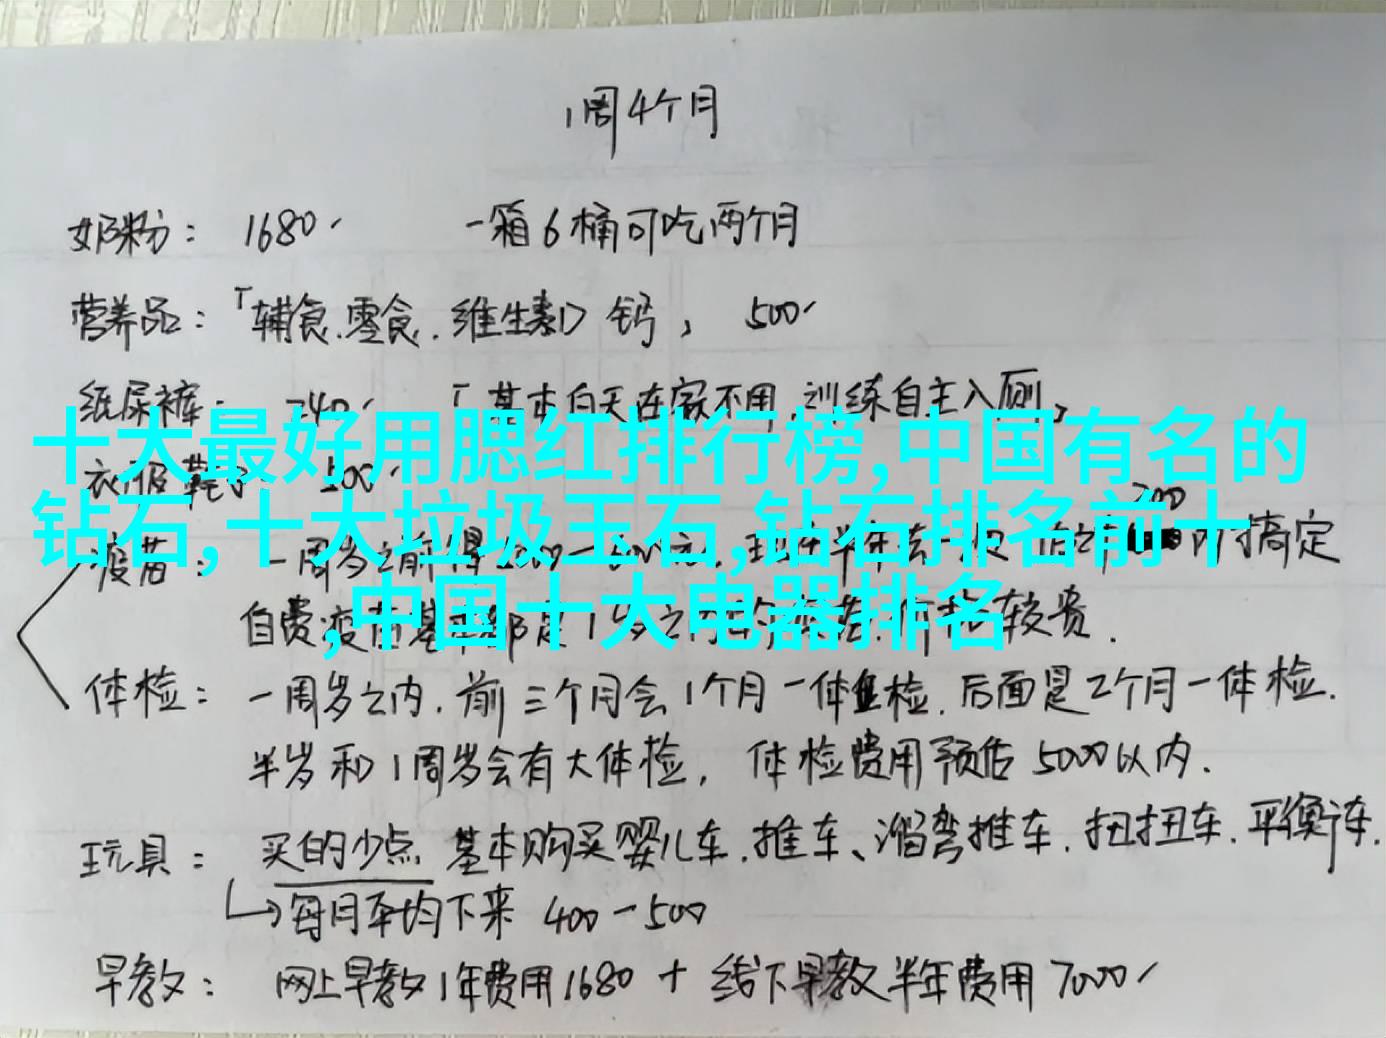 1周4个月
奶粉： 1680 一箱6桶可吃两个月
营养品：「辅食.零食.维生素D 钙， 500
纸尿裤： 240 「基本白天在家不用,训练自主入厕」
十大最好用腮红排行榜,中国有名的
衣服鞋子 500
钻石,十大垃圾玉石,钻石排名前十
疫苗： 一周岁之前 搞定
,中国十大电器排名
自费疫苗基本都是1岁之内 较贵.
体检： 一周岁之内.前三个月会1个月一体检.后面是2个月一体检.
半岁和1周岁会有大体检, 体检费用预估5000以内.
玩具： 买的少点 基本购买婴儿车.推车、溜弯推车.扭扭车.平衡车.
每月平均下来 400-500
早教： 网上早教1年费用1680 + 线下早教半年费用7000